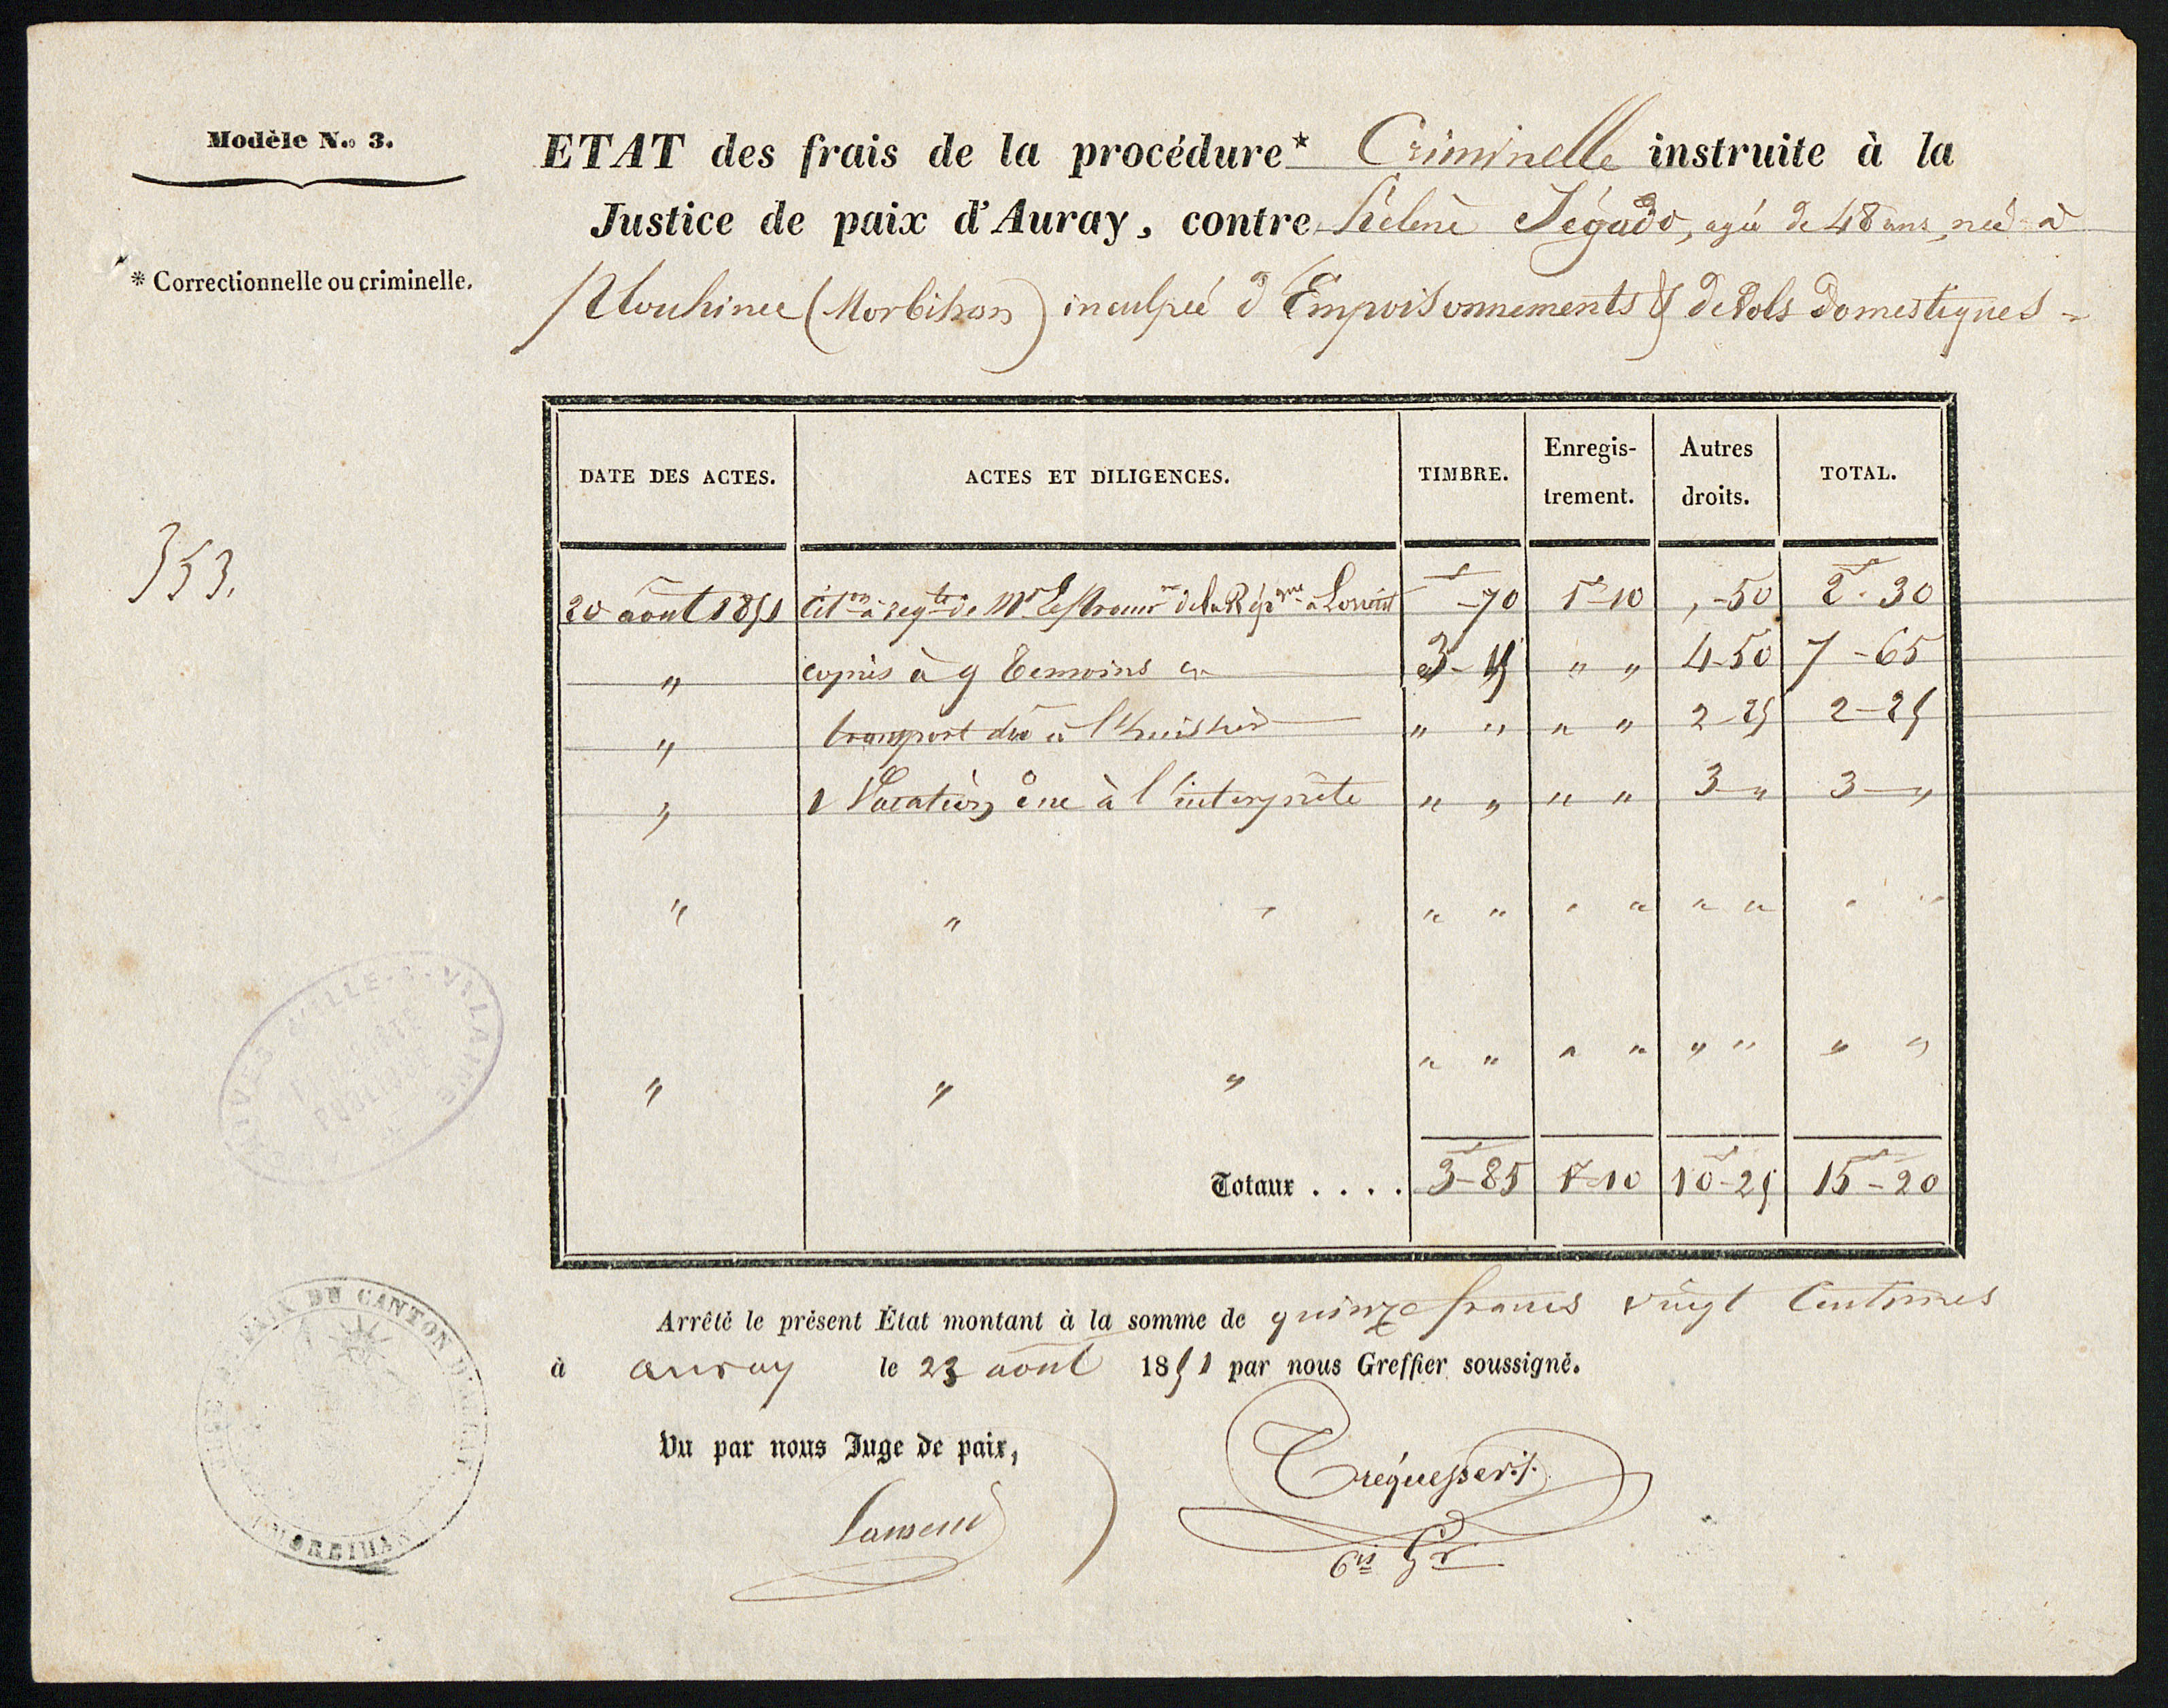 Modèle N.o 3.
ETAT des frais de la procédure* Criminelle instruite à la
Justice de paix d'Auray, contre hélène Jégado, agée de 48 ans, née à
* Correctionnelle ou criminelle.
Plouhinec (Morbihan) inculpée d'Empoisonnements & de Vols Domestiques -
DATE DES ACTES. ACTES ET DILIGENCES. TIMBRE. Enregis-trement. Autres droits. TOTAL.
353.
20 août 1851 Cit.on à reqte de Mr de la Répque à Lorient " -70 1-10 , -50 2 - 30
" copies à 9 témoins 3 - 15 " " 4-50 7 -65
" transport dû à l'huissier " " " " 2-25 2-25
" 1 Vacation à l'interprète " " " " 3 - " 3 - "
" " " " " " " " " " "
" " " " " " " " " " "
Totaux . . . . 3-85 1-10 10-25 15-20
Arrêté le présent État montant à la somme de quinze francs vingt Centimes
à auray le 23 août 1851 par nous Greffier soussigné.
Vu par nous Juge de paix,
ARCHIVES D'ILLE-&-VILAINE
PROPRIÉTÉ
PUBLIQUE
JUSTICE DE PAIX DU CANTON D'AURAY
(MORBIHAN)